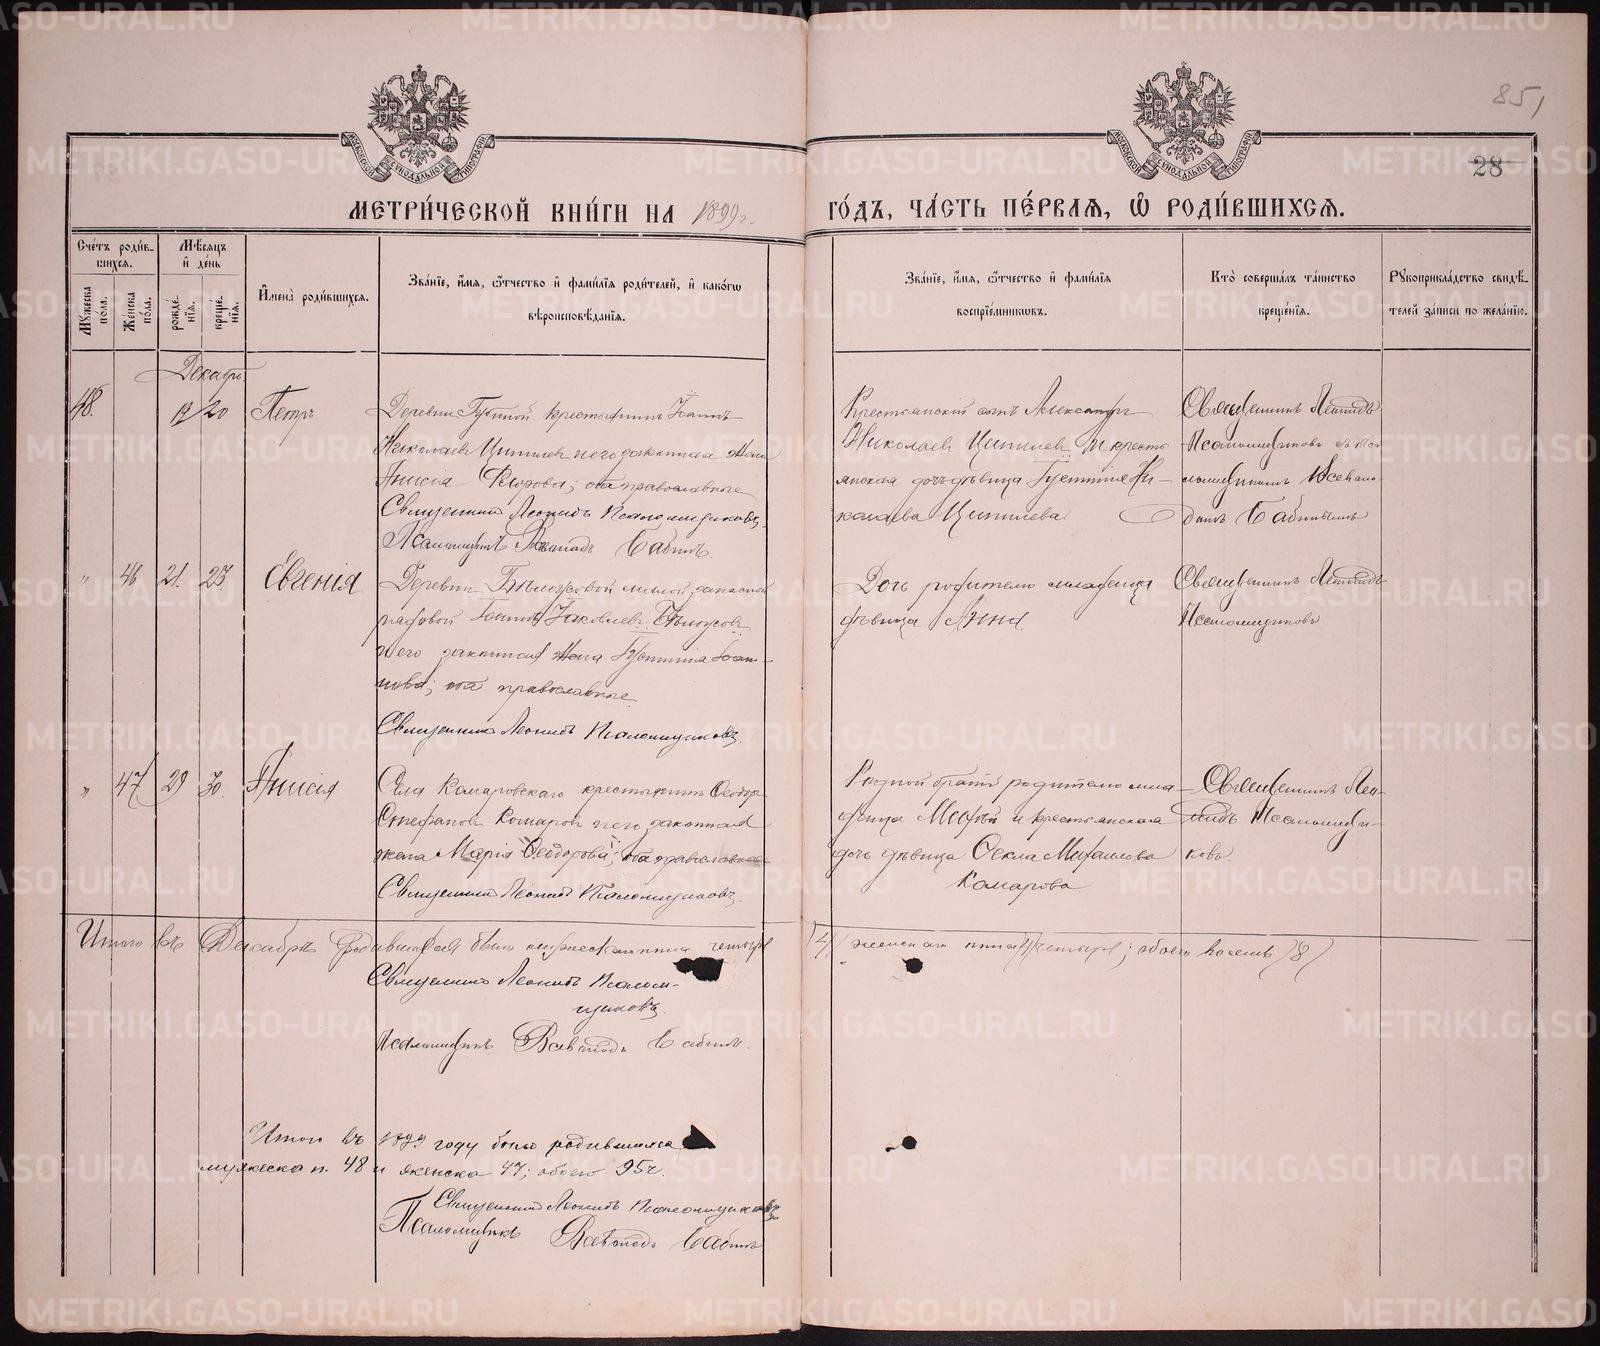 85
28
МОСКОВСКОЙ СѴНОДАЛЬНОЙ ТИПОГРАФІИ
МОСКОВСКОЙ СѴНОДАЛЬНОЙ ТИПОГРАФІИ
МЕТРИ́ЧЕСКОЙ КНИ́ГИ НА 1899 г.
ГО́ДЪ, ЧА́СТЬ ПЕ́РВАЯ, Ѽ РОДИ́ВШИХСЯ.
Сче́тъ роди́в-
шихся.
Мꙋ́жеска по́ла.
Же́нска по́ла.
Мѣ́сяцъ
и҆ де́нь
рожде́нїѧ.
креще́нїѧ.
И҆мена̀ роди́вшихся.
Зва́нїе, и҆́мя, ѻ҆́тчество и҆ фами́лїя роди́телей, и҆ како́гѡ
вѣроисповѣ́данїя.
Зва́нїе, и҆́мя, ѻ҆́тчество и҆ фами́лїя
воспрїе́мникѡвъ.
Кто̀ соверша́лъ та́инство
креще́нїя.
Рꙋкоприкла́дство свидѣ́-
телей за́писи по жела́нїю.
Декабрь
48. 19/20 Петръ
Деревни крестьянинъ Іоаннъ
Николаевъ Ципилевъ и его законная жена
Анисія Ѳеодорова; оба православные
Священникъ Леонидъ Псаломщиковъ
Псаломщикъ Всеволодъ Бабинъ.
Крестьянскій сынъ Александръ
Николаевъ Ципилевъ и кресть-
янская дочь дѣвица Іустинія Ни-
колаева Ципилева
Священникъ Леонидъ
Псаломщиковъ съ пса-
ломщикомъ Всеволо-
домъ Бабинымъ
" 46 21. 23. Евгенія
Деревни Бѣлоусовой запасной
рядовой Іоаннъ Яковлевъ Бѣлоусовъ
и его законная жена Іустинія Іоан-
нова; оба православные
Священникъ Леонидъ Псаломщиковъ.
Дочь родителю младенца
дѣвица Анна
Священникъ Леонидъ
Псаломщиковъ
" 47 29 30. Анисія
Села Комаровскаго крестьянинъ Ѳеодоръ
Стефановъ Комаровъ и его законная
жена Марія Ѳеодорова; оба православные
Священникъ Леонидъ Псаломщиковъ.
Родной братъ родителю мла-
денца и крестьянская
дочь дѣвица Ѳекла Михайлова
Комарова
Священникъ Лео-
нидъ Псаломщи-
ковъ.
Итого въ Декабрѣ родившихся было мужескаго пола четыре
(4) женскаго пола (4) четыре; обоего восемь (8)
Священникъ Леонидъ Псалом-
щиковъ.
Псаломщикъ Всеволодъ Бабинъ.
Итого въ 1899 году было родившихся
мужеска п. 48 и женска 47; обоего 95 ч.
Священникъ Леонидъ Псаломщиковъ
Псаломщикъ Всеволодъ Бабинъ
METRIKI.GASO-URAL.RU